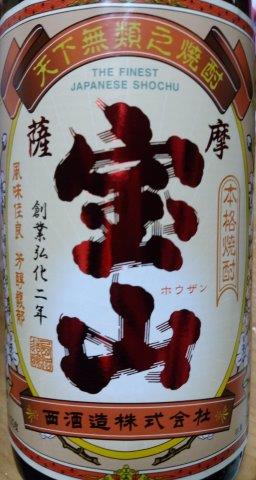 天下無類之焼酎
THE FINEST
JAPANESE SHOCHU
薩摩
宝山
ホウザン
本格焼酎
創業弘化二年
風味佳良 芳醇馥郁
西酒造株式会社